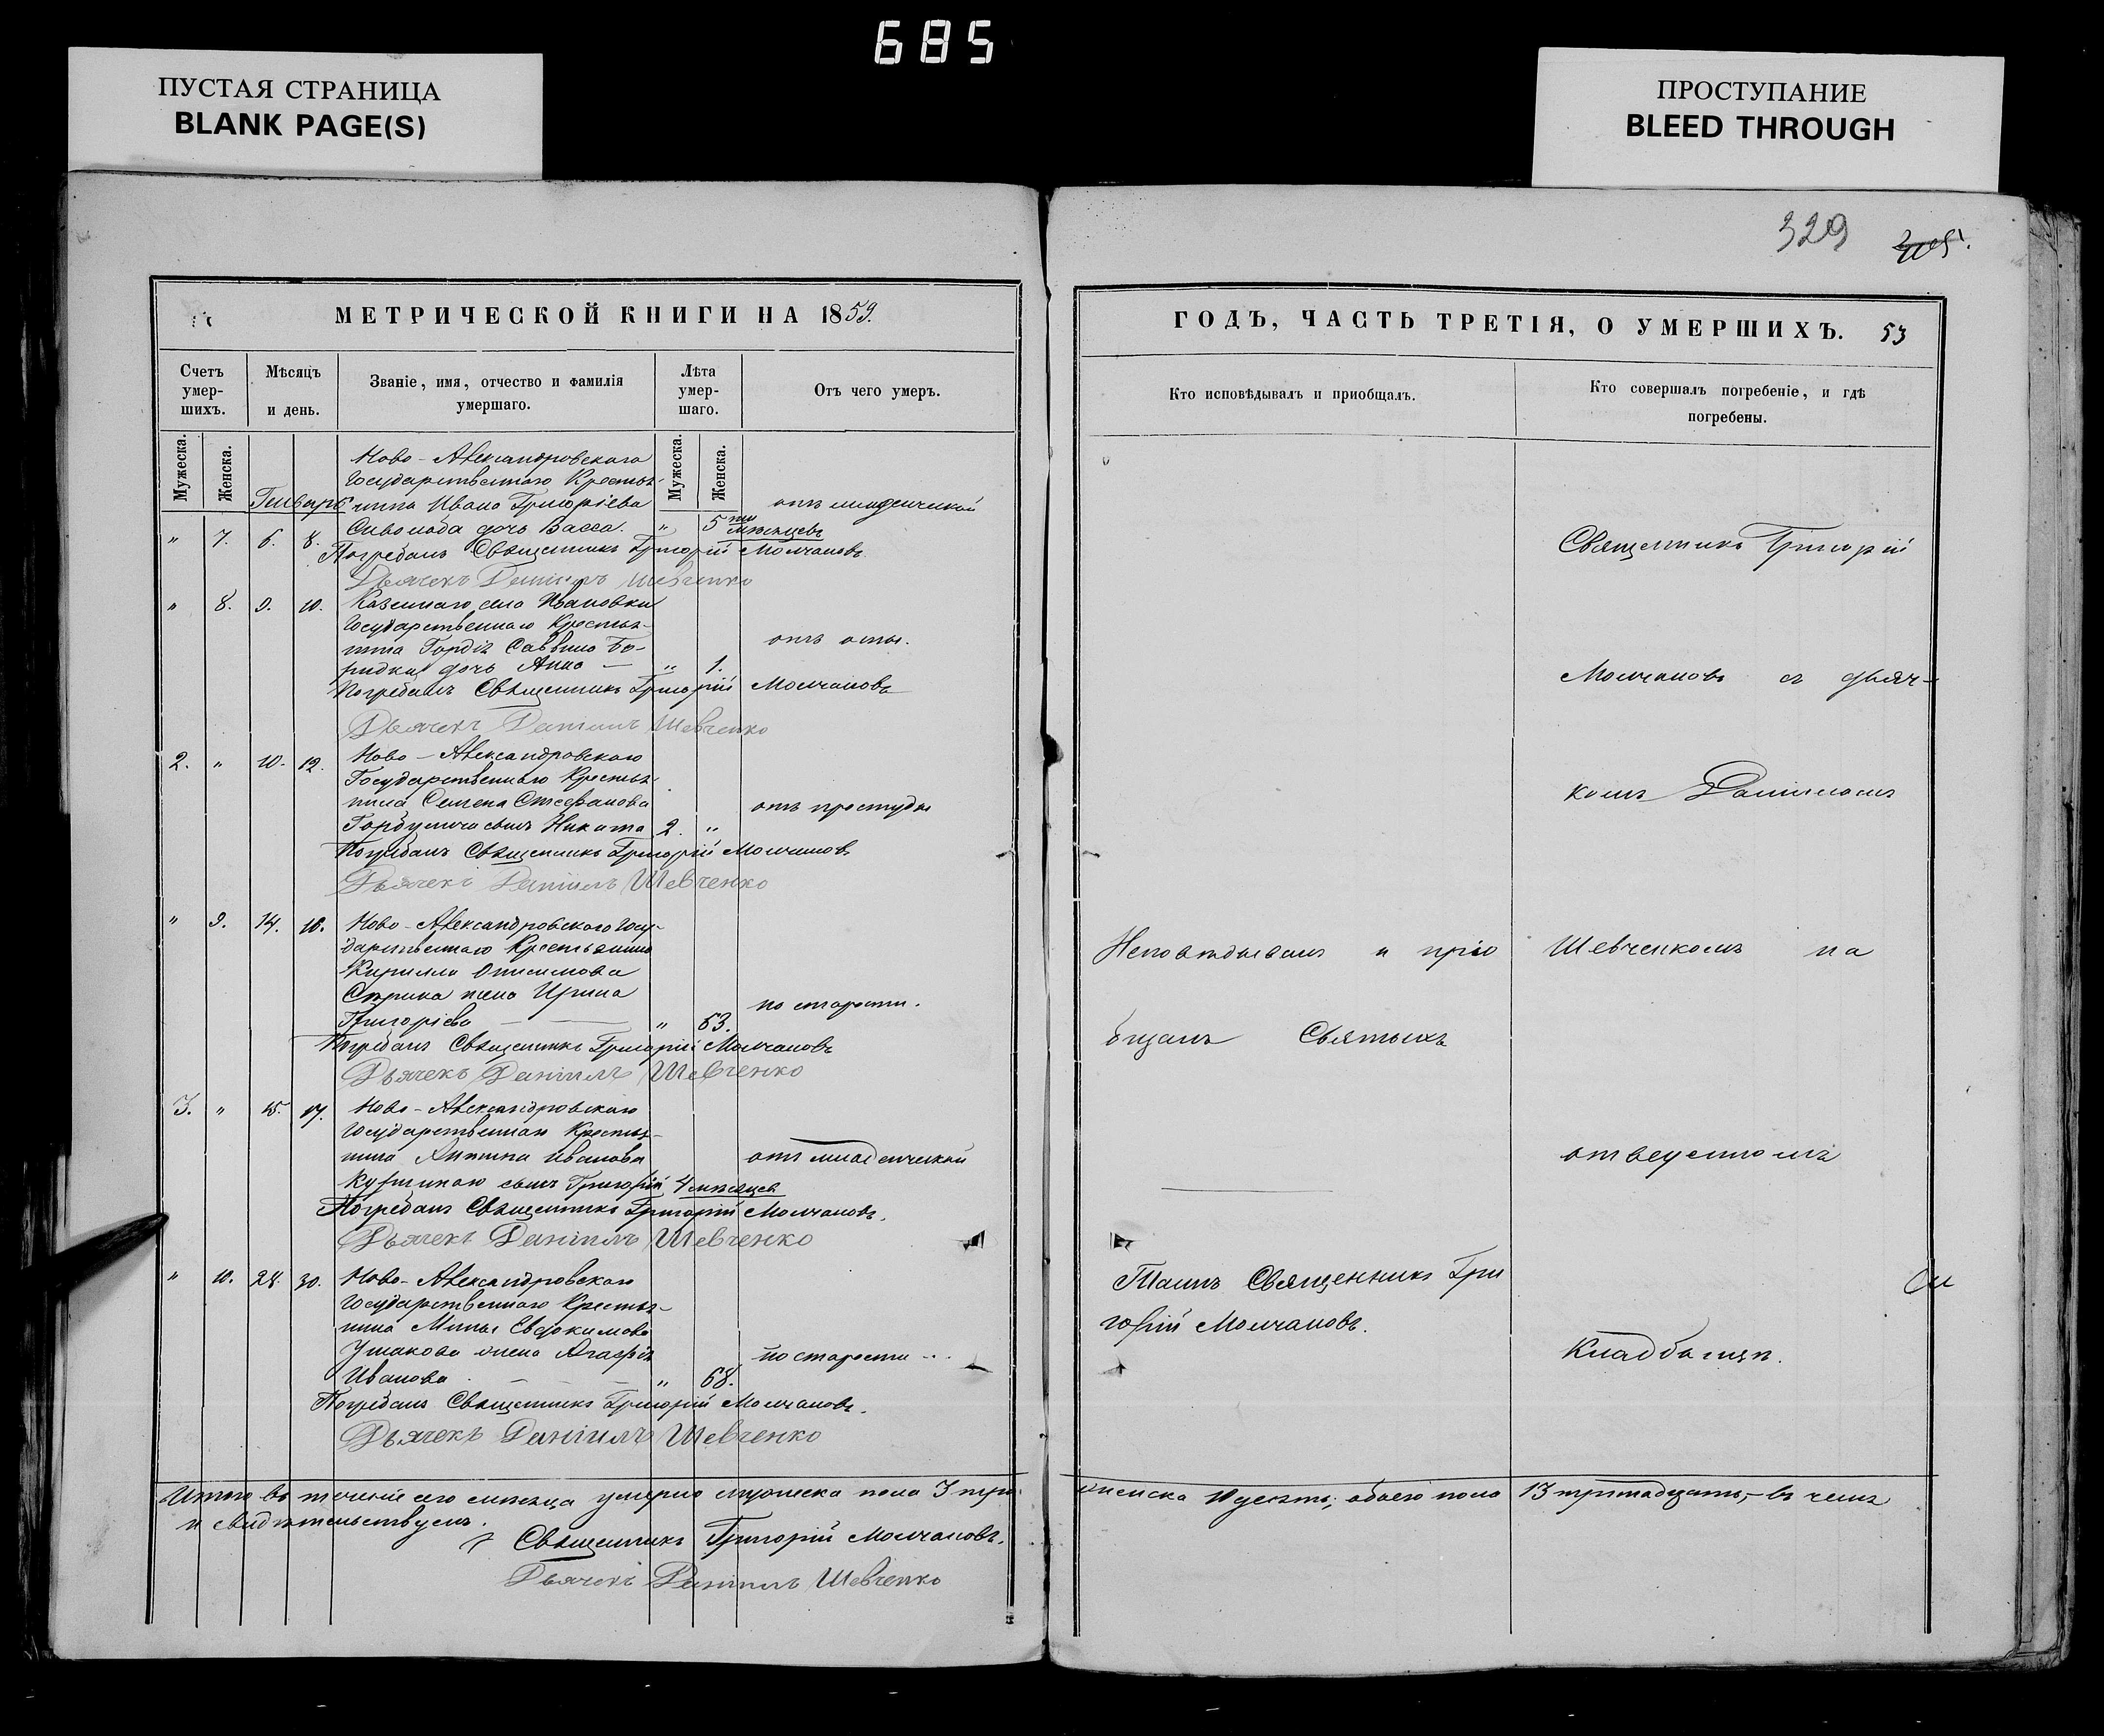 685
ПУСТАЯ СТРАНИЦА
BLANK PAGE(S)
ПРОСТУПАНИЕ
BLEED THROUGH
329
МЕТРИЧЕСКОЙ КНИГИ НА 1859.
Счетъ умер-шихъ.
Мѣсяцъ и день.
Званіе, имя, отчество и фамилія умершаго.
Лѣта умер-шаго.
Отъ чего умеръ.
Мужеска.
Женска.
Мужеска.
Женска.
Ново-Александровскаго
Государственнаго Крестья-
Генварь нина Ивана Григоріева отъ младенческой
" 7. 6. 8. Сиволаба дочь Васса. " 5ти мѣсяцевъ
Погребалъ Священникъ Григорій Молчановъ
Дьячекъ Даніилъ Шевченко
" 8. 9. 10. Казеннаго села Ивановки
Государственнаго Крестья-
нина Гордія Саввина Бо- отъ оспы.
дочь Анна — " 1.
Погребалъ Священникъ Григорій Молчановъ
Дьячекъ Даніилъ Шевченко
2. " 10. 12. Ново-Александровскаго
Государственнаго Крестья-
нина Семена Стефанова отъ простуды
сынъ Никита 2. "
Погребалъ Священникъ Григорій Молчановъ
Дьячекъ Даніилъ Шевченко
" 9. 14. 16. Ново-Александровскаго Госу-
дарственнаго Крестьянина
Кирилла Онисимова
жена Ирина по старости.
Григоріева — " 63.
Погребалъ Священникъ Григорій Молчановъ
Дьячекъ Даніилъ Шевченко
3. " 15. 17. Ново-Александровскаго
Государственнаго Крестья-
нина Антипа Иванова отъ младенческой
сынъ Григорій 4 мѣсяцев
Погребалъ Священникъ Григорій Молчановъ.
Дьячекъ Даніилъ Шевченко
" 10. 28. 30. Ново-Александровскаго
Государственнаго Крестья-
нина Мины Евдокимова
Ушакова жена Агафія по старости
Иванова — " 68.
Погребалъ Священникъ Григорій Молчановъ.
Дьячекъ Даніилъ Шевченко
Итого въ теченіе сего мѣсяца умерло мужеска пола 3 три
и свидѣтельствуемъ.
Священникъ Григорій Молчановъ.
Дьячекъ Даніилъ Шевченко
ГОДЪ, ЧАСТЬ ТРЕТІЯ, О УМЕРШИХЪ. 53
Кто исповѣдывалъ и пріобщалъ.
Кто совершалъ погребеніе, и гдѣ погребены.
Священникъ Григорій
Молчановъ съ дьяч-
комъ Даніиломъ
Исповѣдывалъ и пріо Шевченкомъ на
бщалъ Святыхъ
отведенномъ
Таинъ Священникъ Гри
горій Молчановъ.
Кладбищѣ.
женска 10 десять; обоего пола 13 тринадцать,- въ чемъ